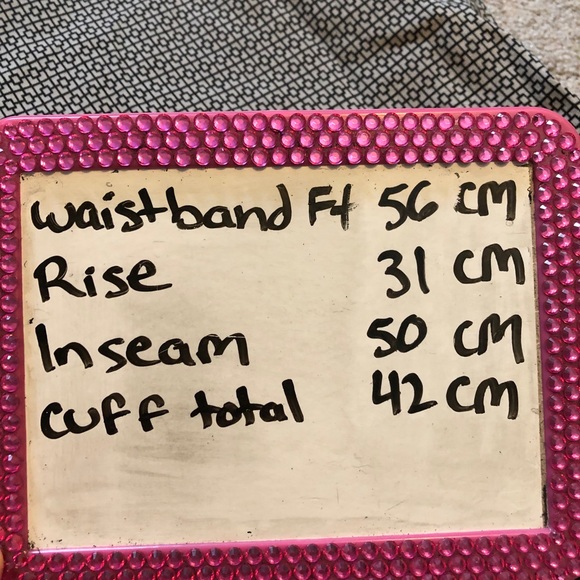 Waistband Ft 56 CM
Rise 31 CM
Inseam 50 CM
Cuff total 42 CM